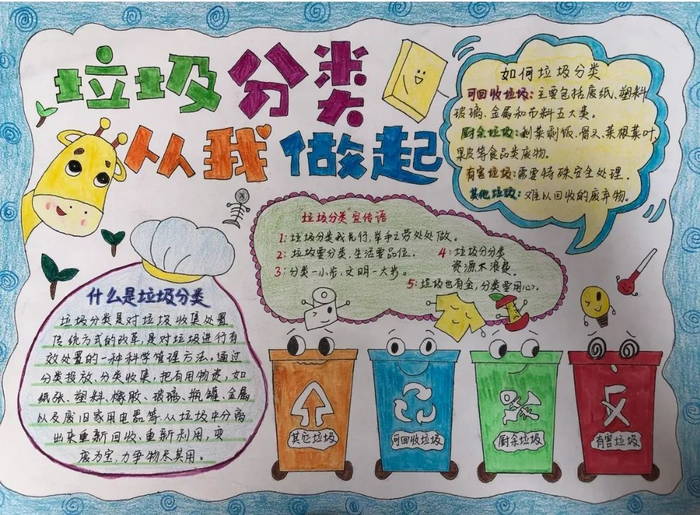 垃圾分类
从我做起
如何垃圾分类
可回收垃圾:主要包括废纸、塑料
玻璃、金属和布料五大类。
厨余垃圾:剩菜剩饭、骨头、菜根菜叶、
果皮等食品类废物。
有害垃圾:需要特殊安全处理。
其他垃圾:难以回收的废弃物。
垃圾分类宣传语
1:垃圾分类我先行,举手之劳处处做。
2:垃圾要分类,生活要品位。
3:分类一小步,文明一大步。
4:垃圾分分类
资源不浪费。
5:垃圾也有金,分类要用心。
什么是垃圾分类
垃圾分类是对垃圾收集处置
传统方式的改革,是对垃圾进行有
效处置的一种科学管理方法,通过
分类投放、分类收集,把有用物资,如
纸张、塑料、橡胶、玻璃、瓶罐、金属
以及废旧家用电器等,从垃圾中分离
出来重新回收、重新利用,变
废为宝,力争物尽其用。
其它垃圾
可回收垃圾
厨余垃圾
有害垃圾